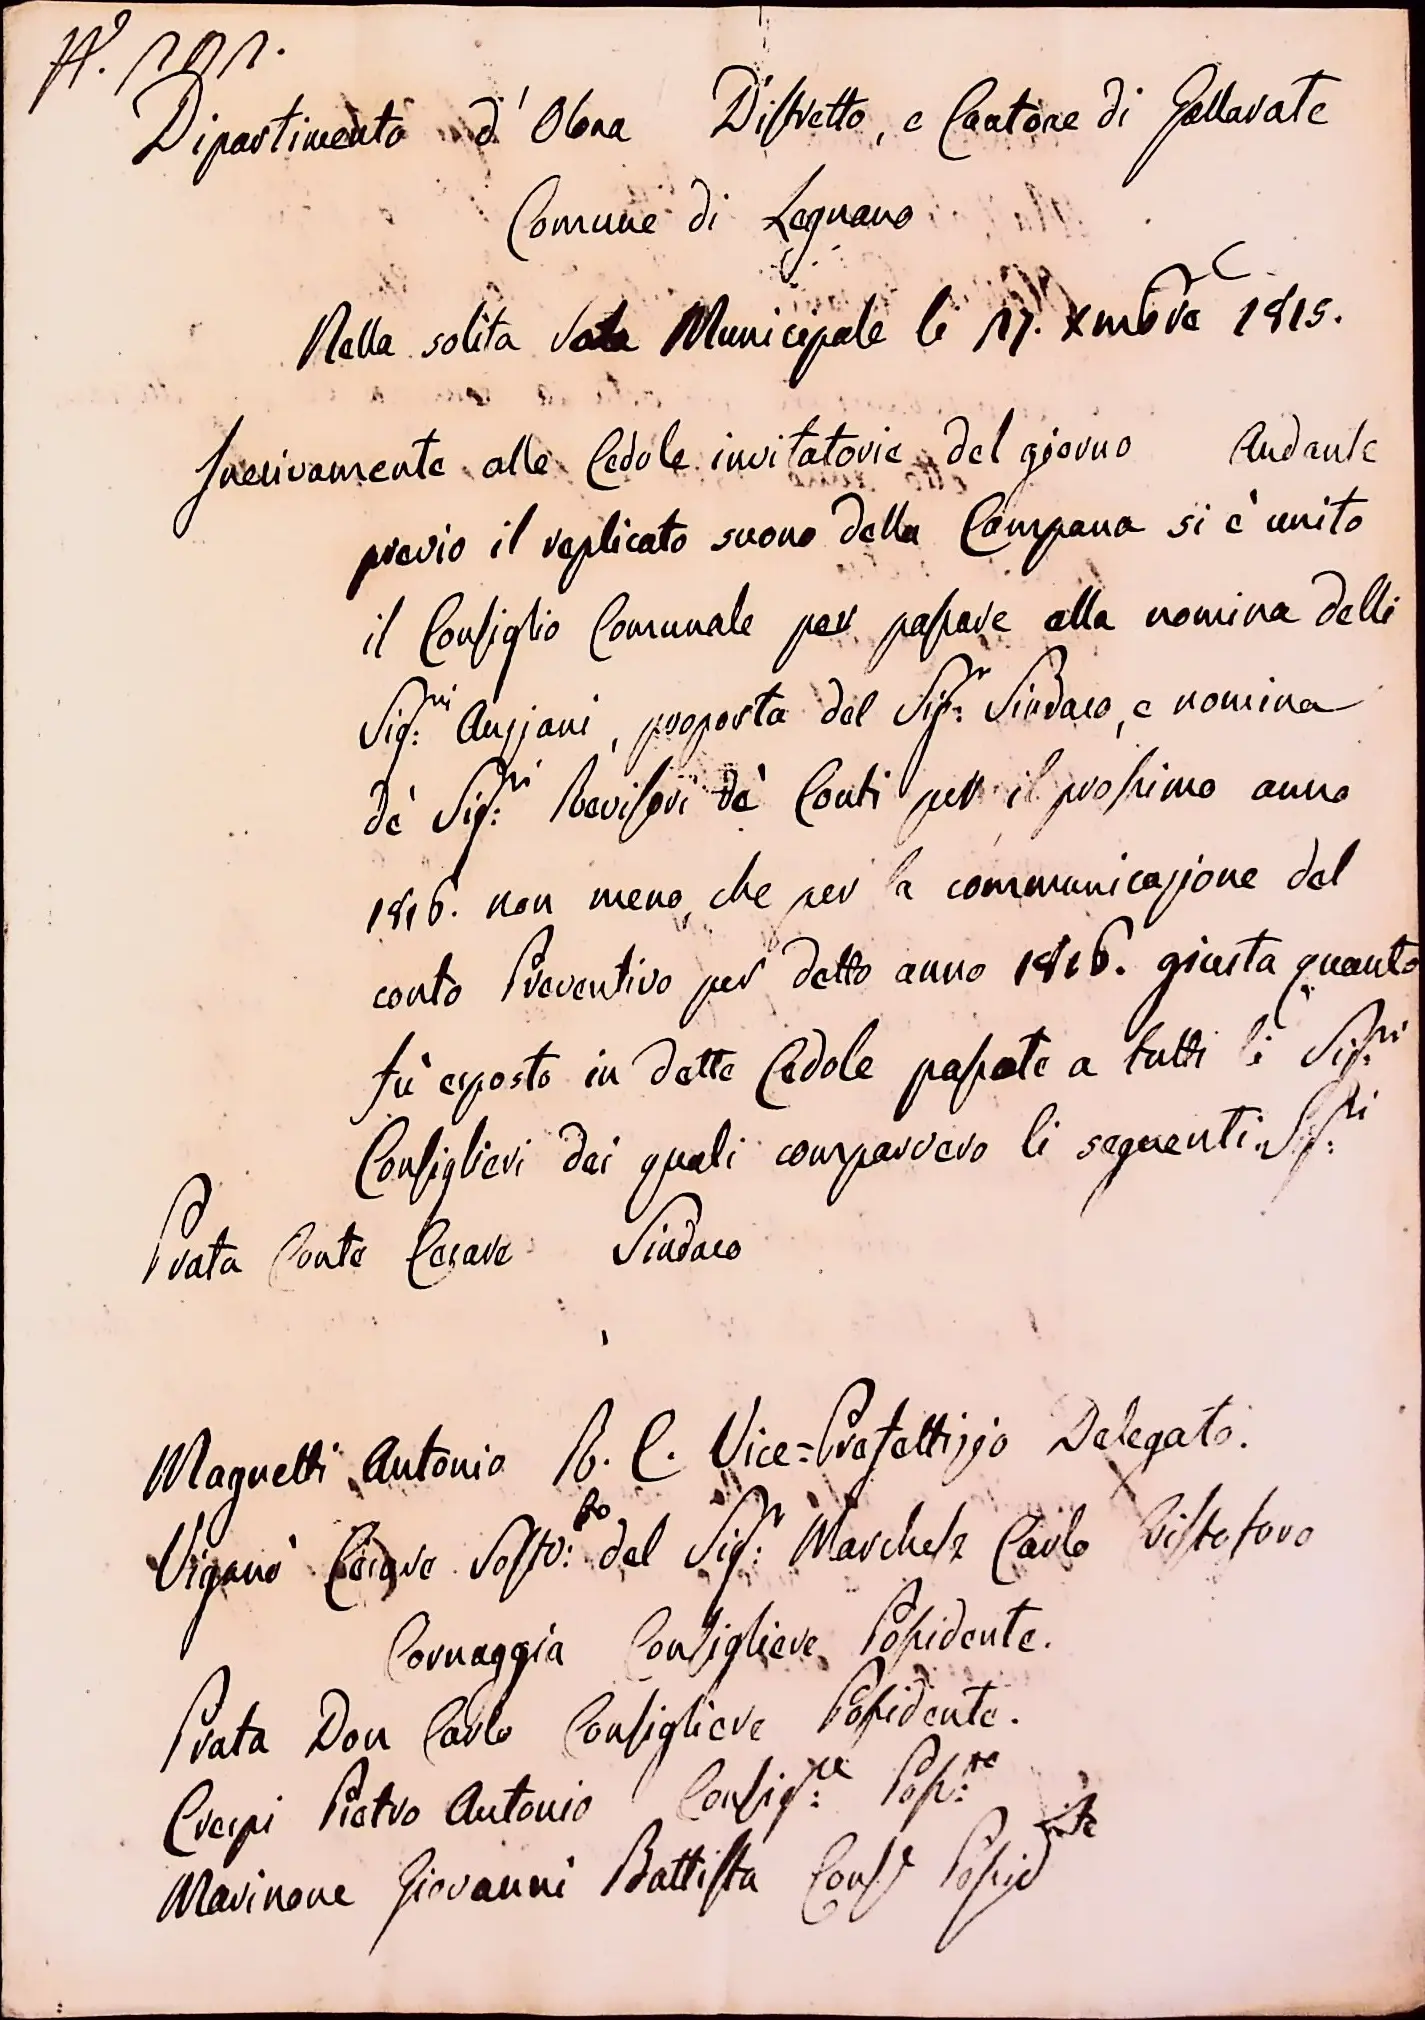 Dipartimento d'Olona Distretto, e Cantone di Gallarate
Comune di Legnano
Nella solita Sala Municipale li 17. Xmbre 1815.
Inerivamente alle Cedole invitatorie del giorno Andante
previo il replicato suono della Campana si è unito
il Consiglio Comunale per passare alla nomina delli
Sig.ri Anzjani, proposta del Sig.r Sindaco, e nomina
dè Sig.ri Revisori dè Conti per il prossimo anno
1816. non meno, che per la communicazjone del
conto Preventivo per detto anno 1816. giusta quanto
fù esposto in dette Cedole passate a tutti li Sig.ri
Consiglieri dai quali comparvero li seguenti Sig.ri
Prata Conte Cesare Sindaco
Magnetti Antonio R. C. Vice=Prefettizjo Delegato.
Viganò Cesare Sostto: del Sig.r Marchese Carlo Cristoforo
Cornaggia Consigliere Possidente.
Prata Don Carlo Consigliere Possidente.
Crespi Pietro Antonio Consig.re Poss.te
Marinone Giovanni Battista Cons.e Possidnte